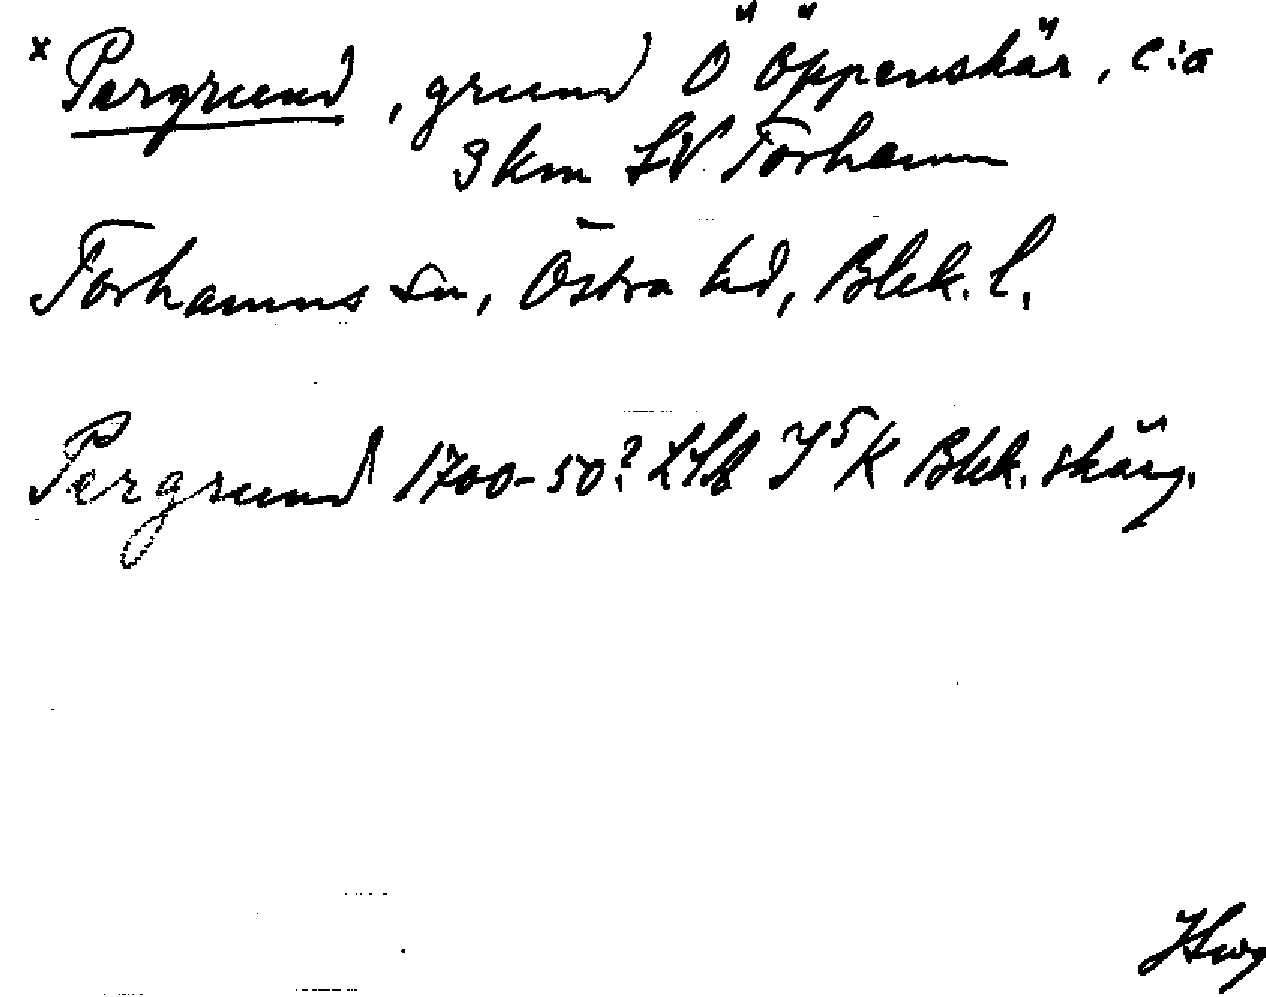 x Pergrund, grund Ö Öppenskär, c:a
3 km SV Torhamn
Torhamns sn, Östra hd, Blek. l.
Pergrund 1700-50? LSA J⁵ K Blek. skärg.